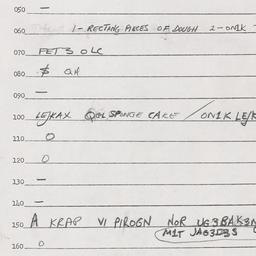 050 —
060 1 - RECTANG PIECES OF DOUGH 2 - ON1K
070 FET 3 OLC
080 $ QH
090 —
100 LEJKAX SPONGE CAKE / ON1K LEJK
110 O
120 O
130 —
140 —
150 A KRAP VI PIROGN NOR UG3BAK3N
M1T
160 O